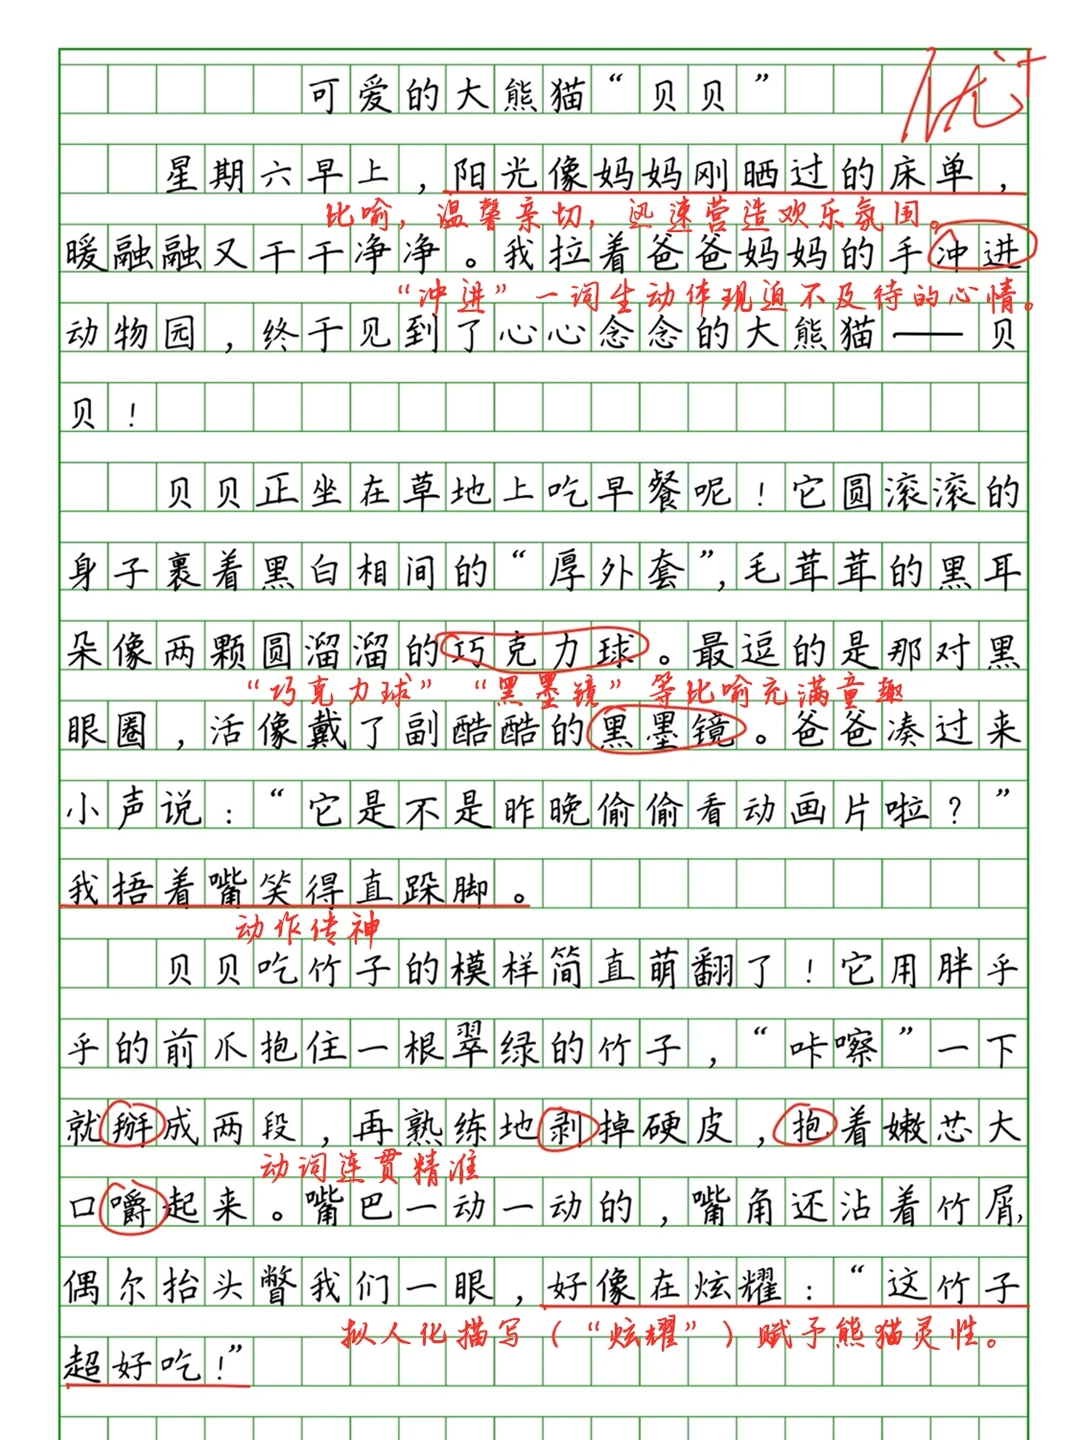 可爱的大熊猫“贝贝”
优+
星期六早上，阳光像妈妈刚晒过的床单，
比喻，温馨亲切，迅速营造欢乐氛围。
暖融融又干干净净。我拉着爸爸妈妈的手冲进
“冲进”一词生动体现迫不及待的心情。
动物园，终于见到了心心念念的大熊猫——贝
贝！
贝贝正坐在草地上吃早餐呢！它圆滚滚的
身子裹着黑白相间的“厚外套”，毛茸茸的黑耳
朵像两颗圆溜溜的巧克力球。最逗的是那对黑
“巧克力球”“黑墨镜”等比喻充满童趣
眼圈，活像戴了副酷酷的黑墨镜。爸爸凑过来
小声说：“它是不是昨晚偷偷看动画片啦？”
我捂着嘴笑得直跺脚。
动作传神
贝贝吃竹子的模样简直萌翻了！它用胖乎
乎的前爪抱住一根翠绿的竹子，“咔嚓”一下
就掰成两段，再熟练地剥掉硬皮，抱着嫩芯大
动词连贯精准
口嚼起来。嘴巴一动一动的，嘴角还沾着竹屑，
偶尔抬头瞥我们一眼，好像在炫耀：“这竹子
拟人化描写（“炫耀”）赋予熊猫灵性。
超好吃！”